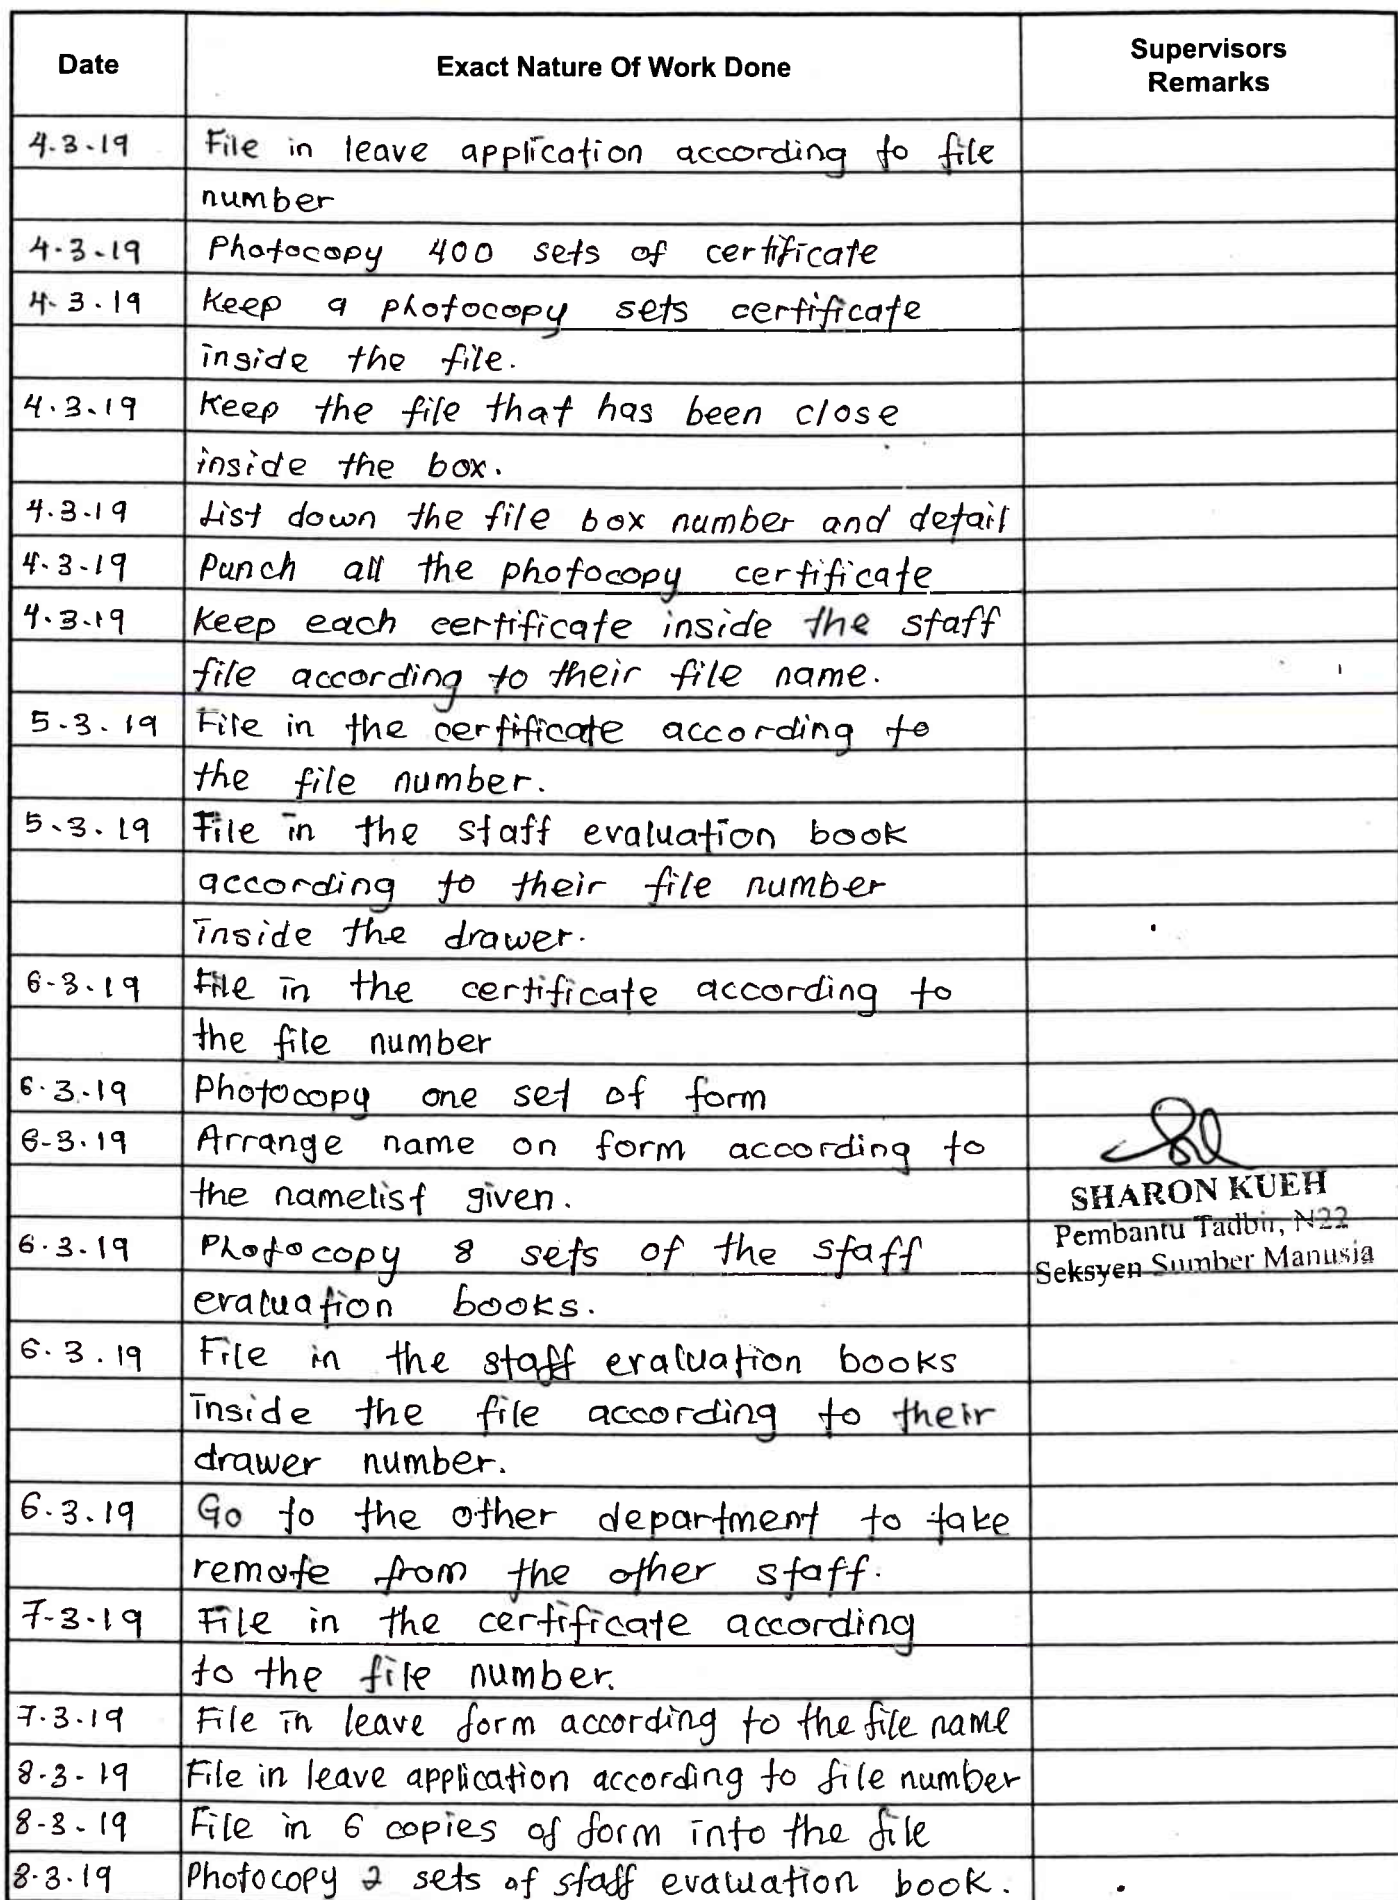 Date Exact Nature Of Work Done Supervisors
Remarks
4.3.19 File in leave application according to file
number
4.3.19 Photocopy 400 sets of certificate
4.3.19 Keep a photocopy sets certificate
inside the file.
4.3.19 Keep the file that has been close
inside the box.
4.3.19 List down the file box number and detail
4.3.19 Punch all the photocopy certificate
4.3.19 Keep each certificate inside the staff
file according to their file name.
5.3.19 File in the certificate according to
the file number.
5.3.19 File in the staff evaluation book
according to their file number
inside the drawer.
6.3.19 File in the certificate according to
the file number
6.3.19 Photocopy one set of form
6.3.19 Arrange name on form according to
the namelist given. SHARON KUEH
6.3.19 Photocopy 8 sets of the staff Pembantu Tadbir, N22
Seksyen Sumber Manusia
evaluation books.
6.3.19 File in the staff evaluation books
inside the file according to their
drawer number.
6.3.19 Go to the other department to take
remote from the other staff.
7.3.19 File in the certificate according
to the file number.
7.3.19 File in leave form according to the file name
8.3.19 File in leave application according to file number
8.3.19 File in 6 copies of form into the file
8.3.19 Photocopy 2 sets of staff evaluation book.